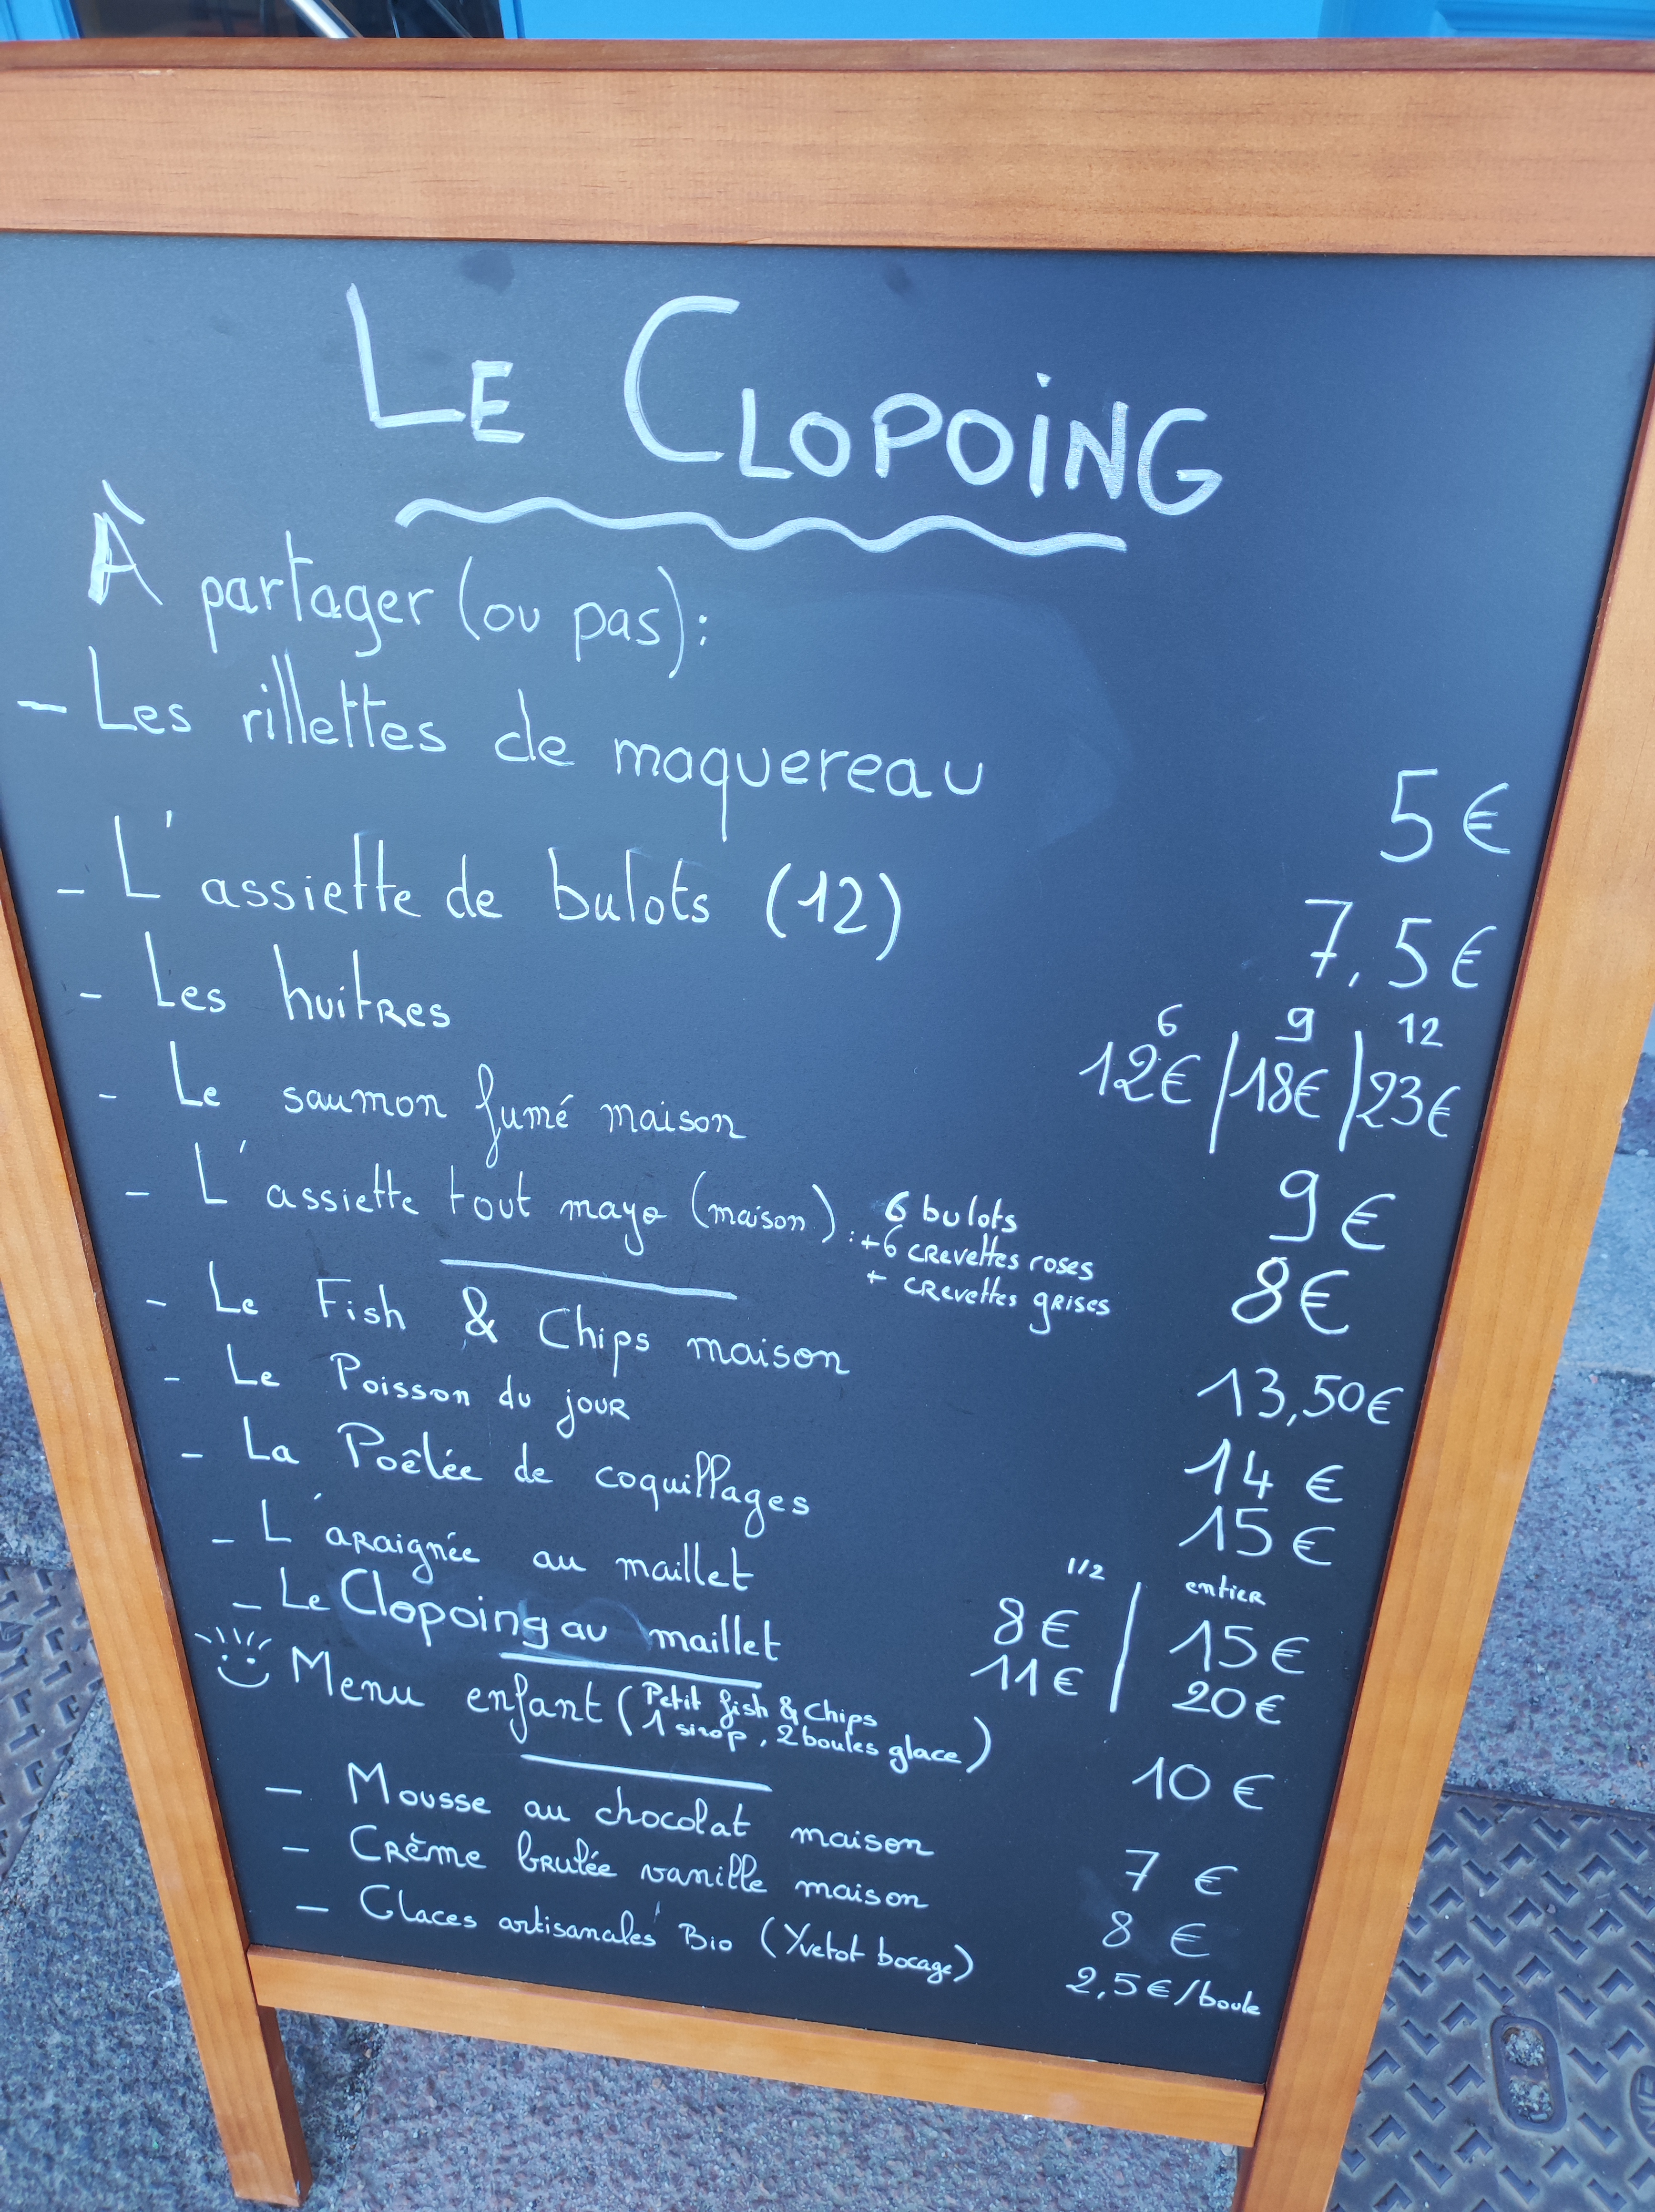 LE CLOPOING
À partager (ou pas):
- Les rillettes de maquereau 5€
- L'assiette de bulots (12) 7,5€
- Les huitres 6 12€ | 9 18€ | 12 23€
- Le saumon fumé maison 9€
- L'assiette tout mayo (maison): 6 bulots 8€
+6 crevettes roses
+ crevettes grises
- Le Fish & Chips maison 13,50€
- Le Poisson du jour 14€
- La Poêlée de coquillages 15€
1/2 | entier
- L'araignée au maillet 8€ | 15€
- Le Clopoing au maillet 11€ | 20€
Menu enfant (Petit fish & Chips
1 sirop, 2 boules glace) 10€
- Mousse au chocolat maison 7€
- Crème brulée vanille maison 8€
- Glaces artisanales Bio (Yvetot bocage) 2,5€/boule